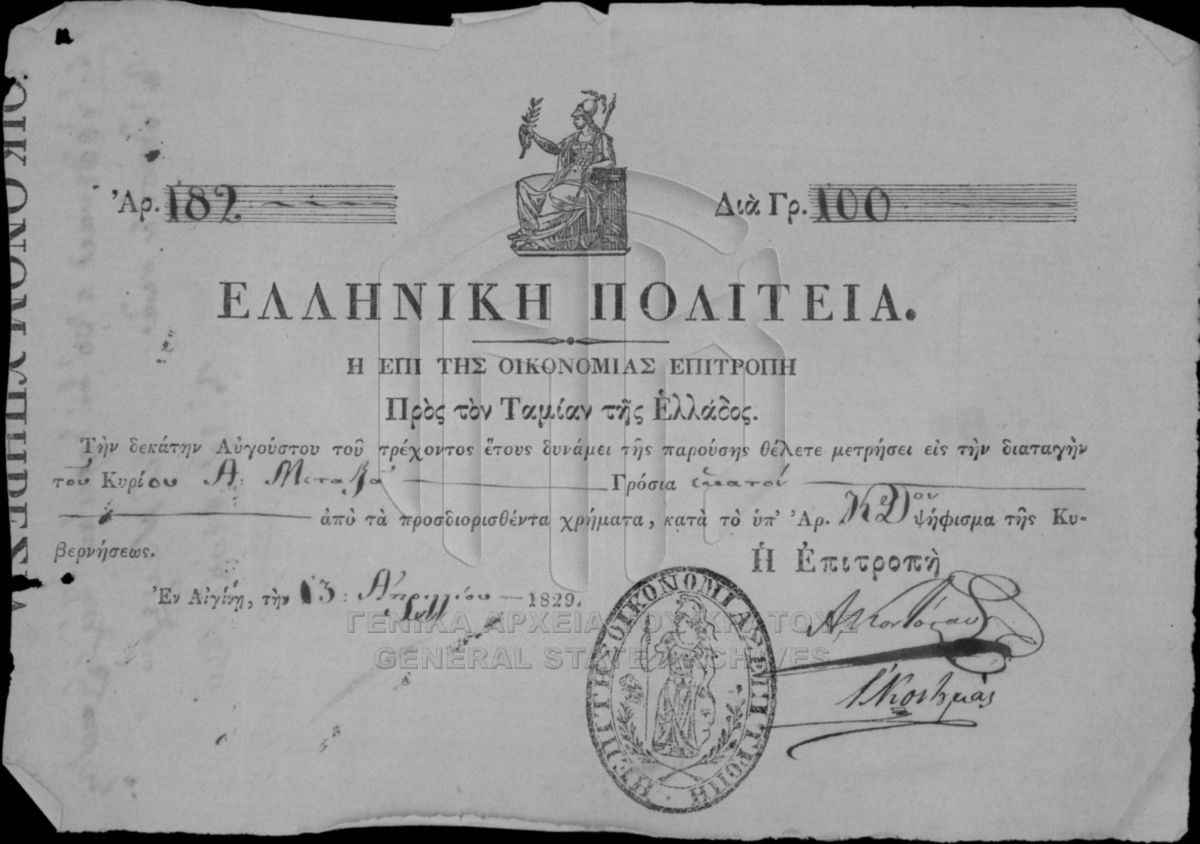 Ἀρ. 182
Διὰ Γρ. 100
ΕΛΛΗΝΙΚΗ ΠΟΛΙΤΕΙΑ.
Η ΕΠΙ ΤΗΣ ΟΙΚΟΝΟΜΙΑΣ ΕΠΙΤΡΟΠΗ
Πρὸς τὸν Ταμίαν τῆς Ἑλλάδος.
Τὴν δεκάτην Αὐγούστου τοῦ τρέχοντος ἔτους δυνάμει τῆς παρούσης θέλετε μετρήσει εἰς τὴν διαταγὴν
τοῦ Κυρίου Α: Μεταξᾶ Γρόσια ἑκατόν
ἀπὸ τὰ προσδιορισθέντα χρήματα, κατὰ τὸ ὑπ' Ἀρ. ΚΔον ψήφισμα τῆς Κυ-
βερνήσεως.
Ἡ Ἐπιτροπὴ
Ἐν Αἰγίνῃ, τὴν 13: Ἀπριλλίου 1829.
Α, Κοντόσταυλος
Η ΕΠΙ ΤΗΣ ΟΙΚΟΝΟΜΙΑΣ ΕΠΙΤΡΟΠΗ
ΓΕΝΙΚΑ ΑΡΧΕΙΑ ΤΟΥ ΚΡΑΤΟΥΣ
GENERAL STATE ARCHIVES